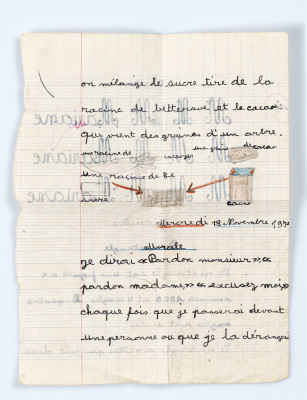 on mélange le sucre tiré de la
racine de betterave et le cacao
qui vient des graines d'un arbre.
une racine de
une graine de cacao
une racine de be
sucre
cacao
Mercredi 18 Novembre
Morale
je dirai «Pardon monsieur» «
pardon madame» «excusez moi»
chaque fois que je passerai devant
une personne ou que je la dérangerai